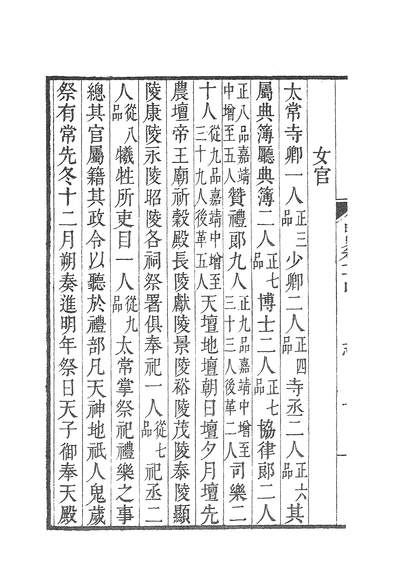 女官
太常寺卿一人正三品少卿二人正四品寺丞二人正六品其
屬典簿廳典簿二人正七品博士二人正七品協律郎二人
正八品嘉靖中增至五人贊禮郎九人正九品嘉靖中增至三十三人後革二人司樂二
十人從九品嘉靖中增至三十九人後革五人天壇地壇朝日壇夕月壇先
農壇帝王廟祈穀殿長陵獻陵景陵裕陵茂陵泰陵顯
陵康陵永陵昭陵各祠祭署俱奉祀一人從七品祀丞二
人從八品犧牲所吏目一人從九品太常掌祭祀禮樂之事
總其官屬籍其政令以聽於禮部凡天神地祇人鬼歲
祭有常先冬十二月朔奏進明年祭日天子御奉天殿